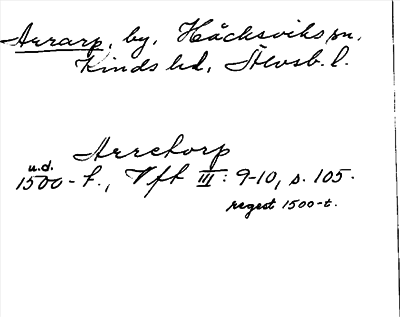 Arrarp, by, Håcksviks sn,
Kinds hd, Älvsb. l.
Arretorp
u.d.
1500-t., Vft III: 9-10, s. 105.
regest 1500-t.